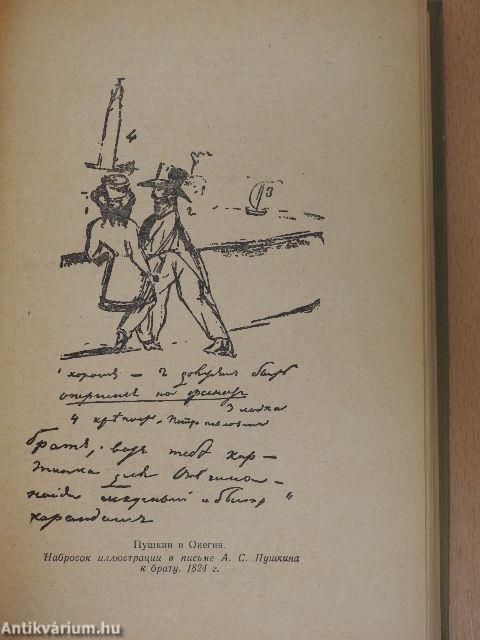 4
1
2
3
1 хорошъ — 2 долженъ быть
опершися на гранитъ
3 лодка
4 крѣпость Петропавловская
братъ, вотъ тебѣ кар-
тинка для Онѣгина —
найди искусный и быстр
карандашъ
Пушкин и Онегин.
Набросок иллюстрации в письме А. С. Пушкина
к брату. 1824 г.
Antikvárium.hu